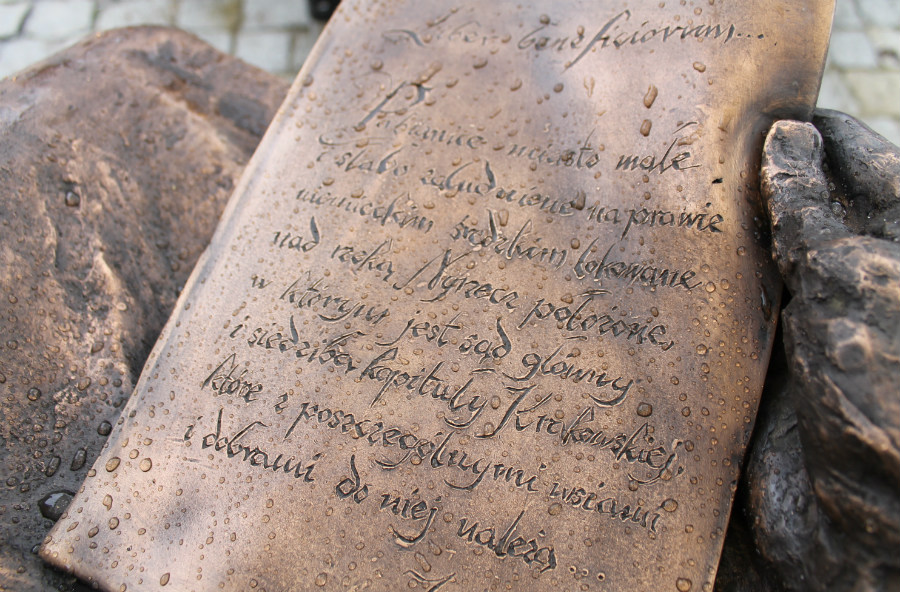 Liber beneficiorum...
Pabianice miasto małe
i słabo zaludnione na prawie
niemieckim średzkim lokowane
nad rzeką Nyrzecz położone,
w którym jest sąd główny
i siedziba kapituły Krakowskiej,
które z poszczególnymi wsiami
i dobrami do niej należą...